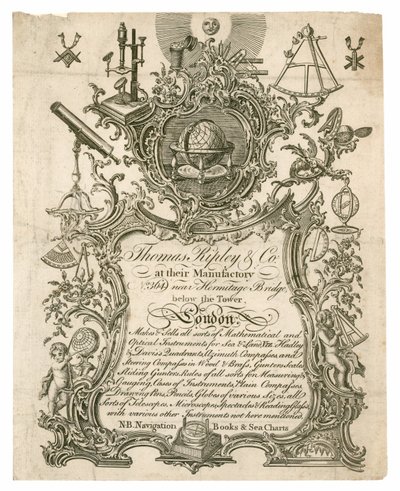 Thomas, Ripley & Co.
at their Manufactory
No. 364 near Hermitage Bridge
below the Tower,
London.
Makes & Sells all sorts of Mathematical and
Optical Instruments for Sea & Land, Viz. Hadley
& Davis's Quadrants, Azimuth Compasses, and
Steering Compasses in Wood & Brass, Gunters Scales
Sliding Gunters, Rules of all sorts for Measuring &
Gauging, Cases of Instruments, Plain Compasses,
Drawing Pens, Pencils, Globes of various Sizes, all
Sorts of Telescopes, Microscopes, Spectacles & Reading Glasses
with various other Instruments not here mentioned
N.B. Navigation Books & Sea Charts